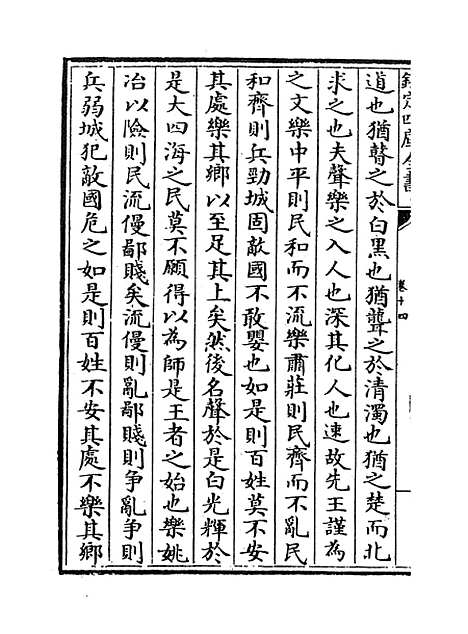 欽定四庫全書
卷十四
道也猶瞽之於白黑也猶聾之於清濁也猶之楚而北
求之也夫聲樂之入人也深其化人也速故先王謹為
之文樂中平則民和而不流樂肅莊則民齊而不亂民
和齊則兵勁城固敵國不敢嬰也如是則百姓莫不安
其處樂其鄉以至足其上矣然後名聲於是白光輝於
是大四海之民莫不願得以為師是王者之始也樂姚
冶以險則民流僈鄙賤矣流僈則亂鄙賤則争亂争則
兵弱城犯敵國危之如是則百姓不安其處不樂其鄉